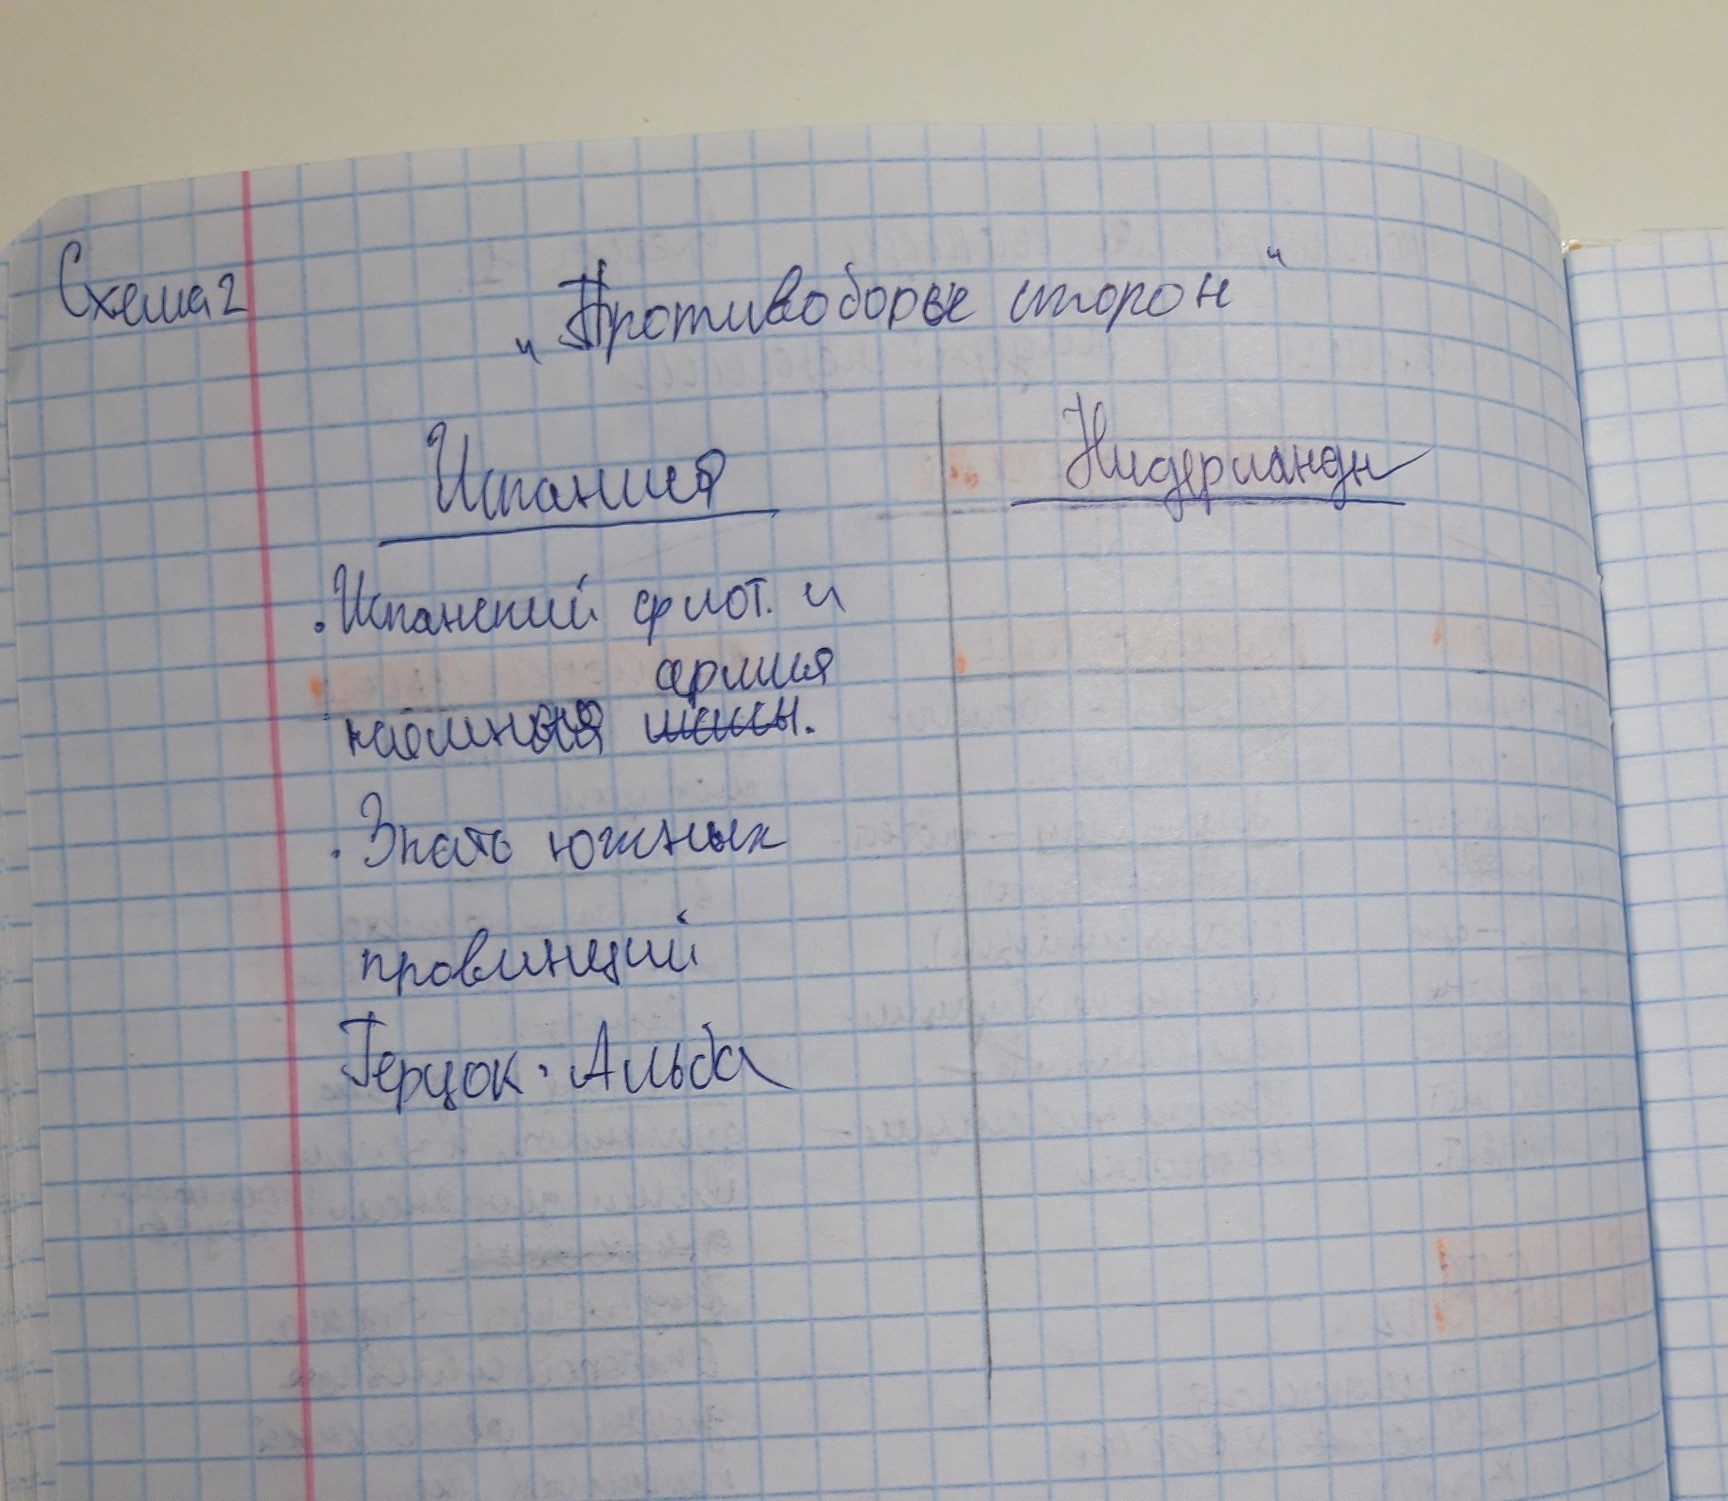 Схема 2
„Противоборье сторон"
Испания
Нидерланды
. Испанский флот. и
армия
наёмная шисы.
. Знать южных
провинций
Герцок. Альба